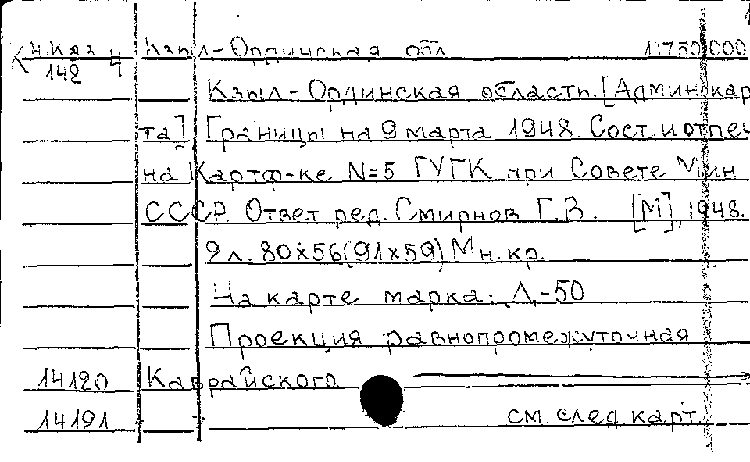 К н.Каз 4 Кзыл-Ординская обл. 1:750 000
142
Кзыл-Ординская область. [Админ. кар
та] Границы на 9 марта 1948. Сост. и отпеч
на Картф-ке N=5 ГУГК при Совете Мин
СССР. Ответ ред. Смирнов Г.В. [М], 1948.
2л. 80x56(91x59) Мн. кр.
На карте марка: Л,-50
Проекция равнопромежуточная
14120 Каврайского
14191 см. след. карт.